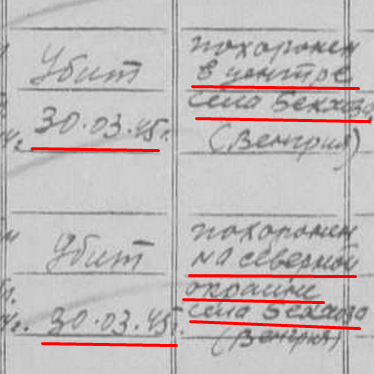 Убит
30.03.45г.
похоронен
в центре
села Бекхаза
(Венгрия)
Убит
30.03.45г.
похоронен
на северной
окраине
села Бекхаза
(Венгрия)